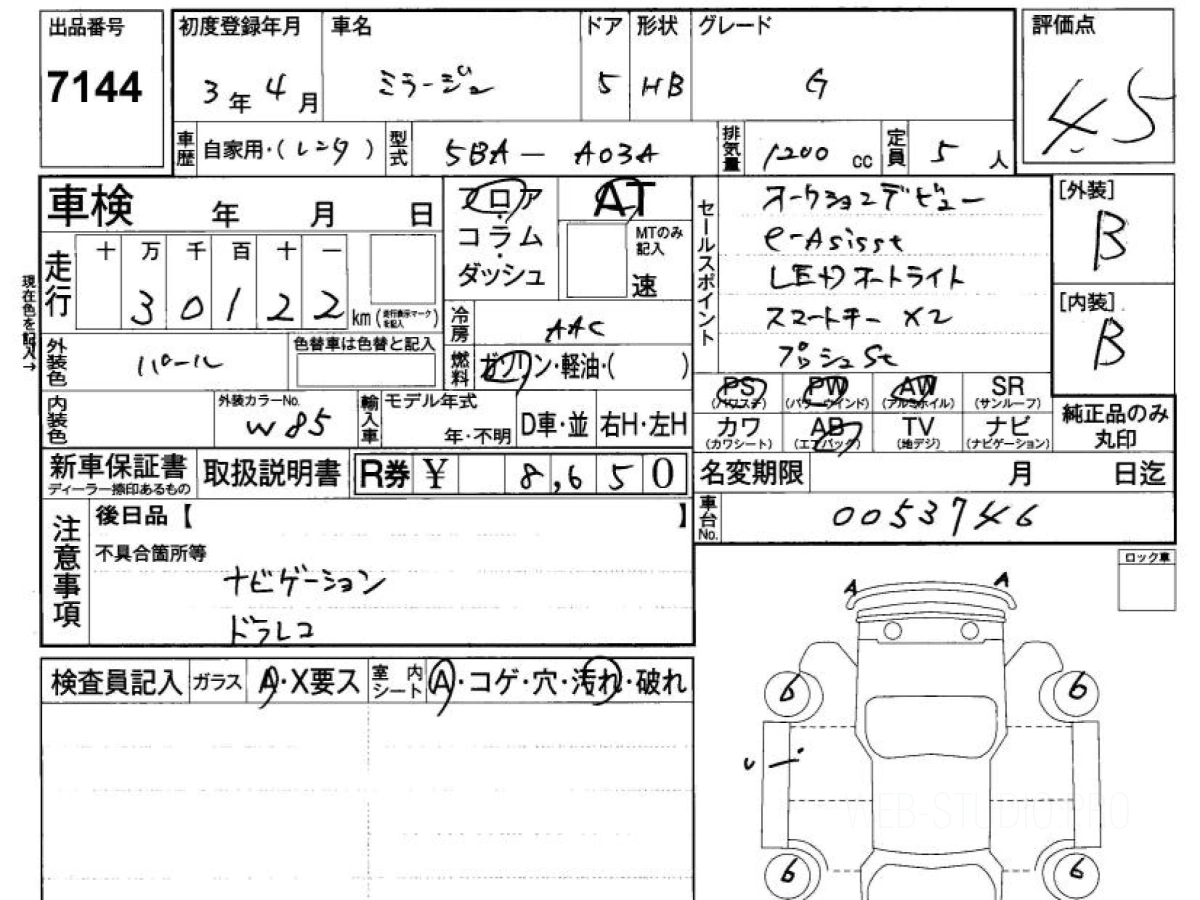 出品番号
7144
初度登録年月
3年4月
車名
ミラージュ
ドア
5
形状
HB
グレード
G
評価点
4.5
車歴
自家用・(レンタ)
型式
5BA-A03A
排気量
1200cc
定員
5人
車検 年 月 日
フロア
コラム
ダッシュ
AT
MTのみ記入
速
セールスポイント
オークションデビュー
e-Asisst
LEDオートライト
スマートキー×2
プッシュSt
[外装]
B
[内装]
B
現在色を記入→
走行
十 万 千 百 十 一
3 0 1 2 2
km(走行表示マークを記入)
冷房
AAC
燃料
ガソリン・軽油・( )
外装色
パール
色替車は色替と記入
内装色
外装カラーNo.
W85
輸入車
モデル年式
年・不明
D車・並
右H・左H
PS
(パワステ)
PW
(パワーウインド)
AW
(アルミホイル)
SR
(サンルーフ)
カワ
(カワシート)
AB
(エアバック)
TV
(地デジ)
ナビ
(ナビゲーション)
純正品のみ
丸印
新車保証書
ディーラー捺印あるもの
取扱説明書
R券 ¥ 8,650
名変期限 月 日迄
車台No.
0053746
注意事項
後日品【 】
不具合箇所等
ナビゲーション
ドラレコ
ロック車
A A
検査員記入
ガラス
A・X要ス
室内シート
A・コゲ・穴・汚れ・破れ
6 6
6 6
WEB-STUDIO.PRO